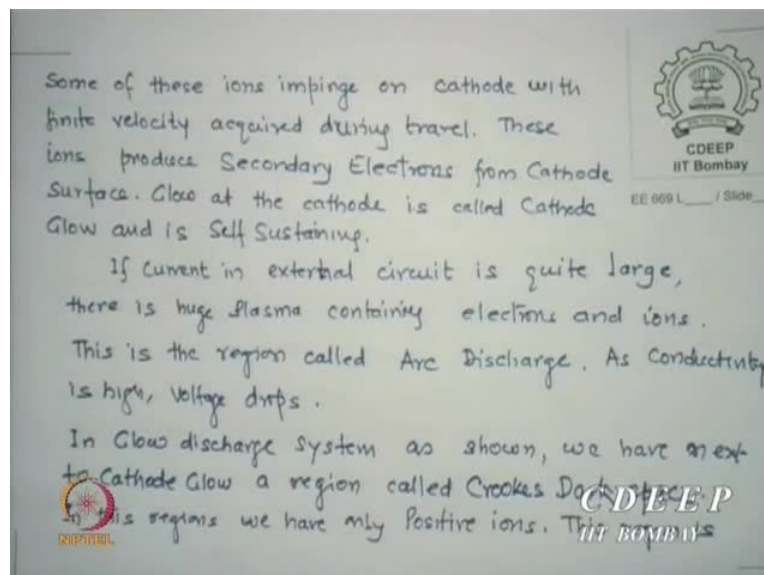 Some of these ions impinge on cathode with
finite velocity acquired during travel. These
ions produce Secondary Electrons from Cathode
Surface. Glow at the cathode is called Cathode
Glow and is Self Sustaining.
If Current in external circuit is quite large,
there is huge Plasma containing electrons and ions.
This is the region called Arc Discharge. As Conductivity
is high, Voltage drops.
In Glow discharge System as shown, we have next
to Cathode Glow a region called Crookes Dark space.
In this regions we have only Positive ions. This is
CDEEP
IIT Bombay
EE 669 L____ / Slide__
NPTEL
CDEEP
IIT BOMBAY